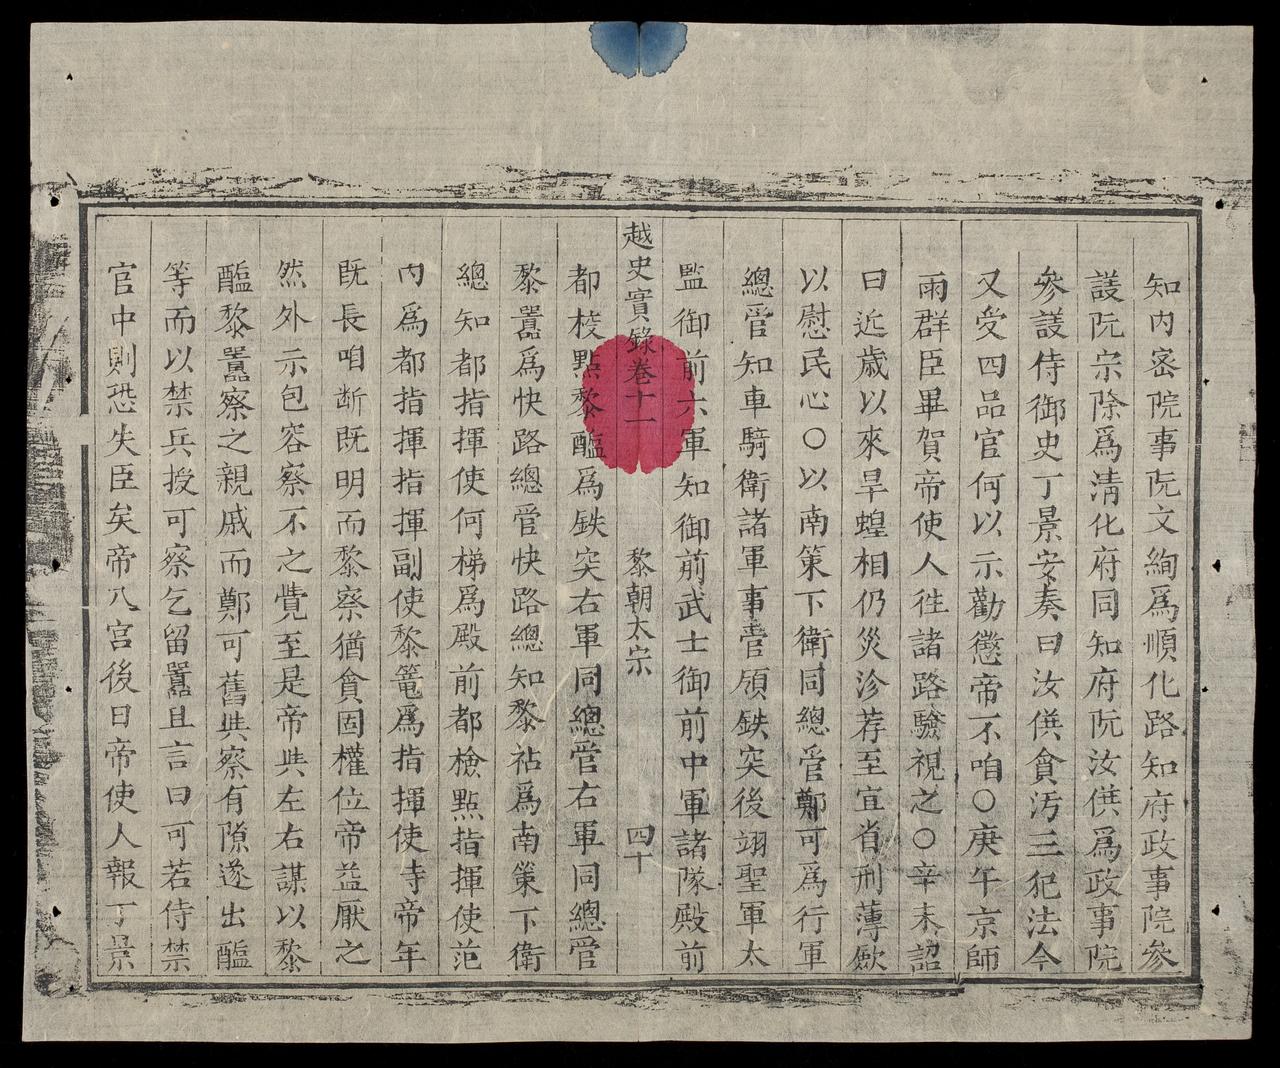 知内密院事阮文絢爲順化路知府政事院參
議阮宗除爲清化府同知府阮汝供爲政事院
參議侍御史丁景安奏曰汝供貪汚三犯法今
又受四品官何以示勸懲帝不咱○庚午京師
雨群臣畢賀帝使人徃諸路驗視之○辛未詔
曰近歲以來旱蝗相仍災沴荐至宜省刑薄歛
以慰民心○以南策下衛同總管鄭可爲行軍
總管知車騎衛諸軍事管領鉄突後翊聖軍太
監御前六軍知御前武士御前中軍諸隊殿前
越史實錄卷十一 黎朝太宗 四十
都校點黎醢爲鉄突右軍同總管右軍同總管
黎嚚爲快路總管快路總知黎祐爲南策下衛
總知都指揮使何梯爲殿前都檢點指揮使范
内爲都指揮指揮副使黎篭爲指揮使寺帝年
既長咱断既明而黎察猶貪固權位帝益厭之
然外示包容察不之覺至是帝與左右謀以黎
醢黎嚚察之親戚而鄭可舊與察有隙遂出醢
等而以禁兵授可察乞留嚚且言曰可若侍禁
官中則恐失臣矣帝入宮後日帝使人報丁景